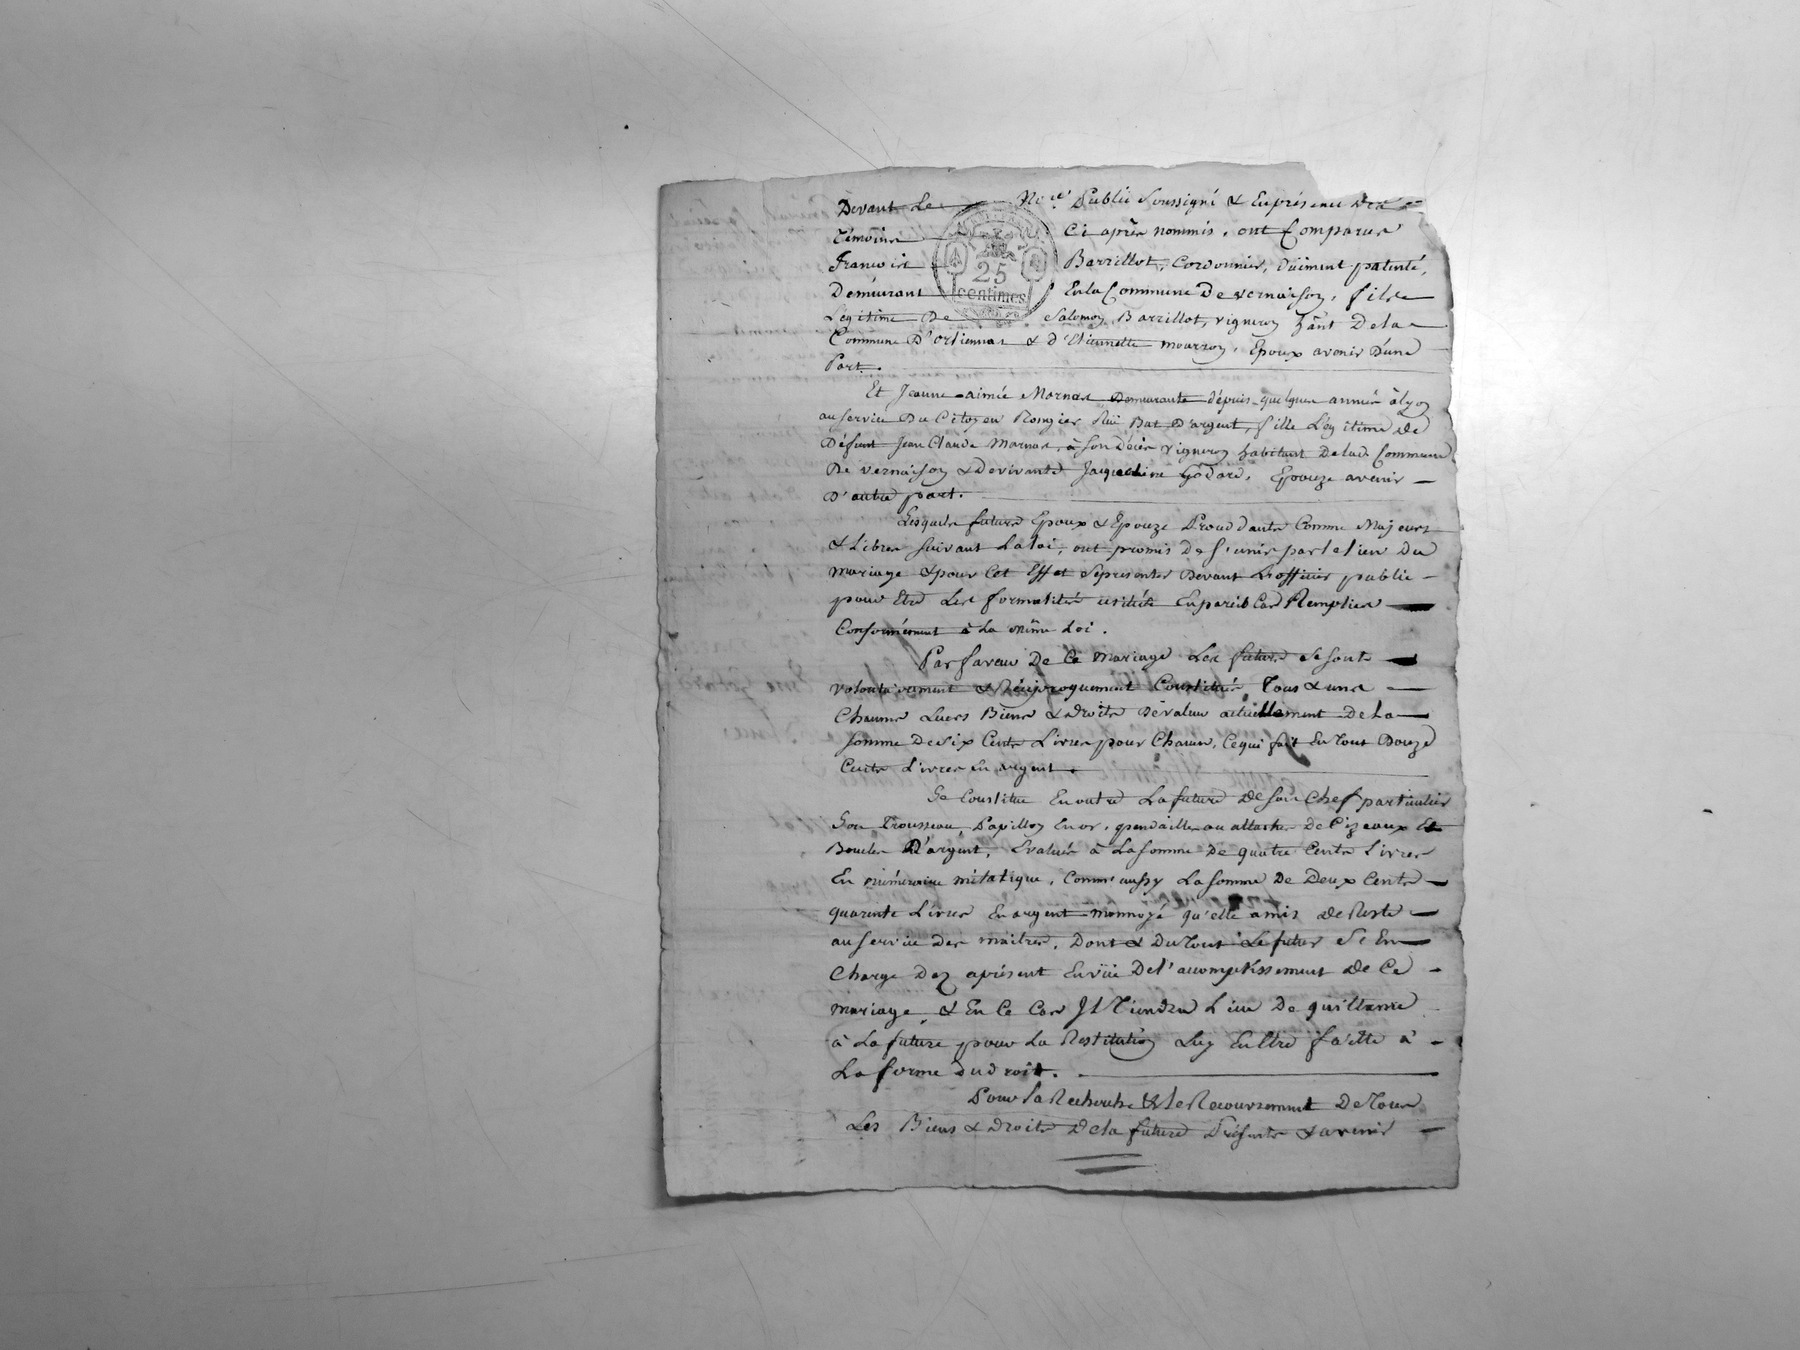 Devant Le Nore Public Soussigné & En présence des
Témoins Ci après nommés, ont Comparus
François Barrillot, Cordonnier, Düiment patenté,
Demeurant En la Commune De vernaison, fils
Legitime De Salomon Barrillot, vigneron hãnt De la
Commune D'orliennas & d'Etiennette mourron, Epoux avenir D'une
Part.
25
centimes
Et Jeanne aimée Marnas Demeurante dépuis quelques année à lyon
au service Du Citoyen Rongier Rüe Bat D'argent, fille Légitime de
Défunt Jean Claude Marnas, à son Décès vigneron habitant De lad. Commune
De vernaison & De vivante Jacqueline Godard, Epouze avenir
D'autre part.
Lesquels futurs Epoux & Epouze Procédants Comme Majeurs
& Libres suivant La loi, ont promis De s'unir par le lien Du
mariage & pour Cet Effet se présenter Devant L'officier public
pour Etre Les formalités usitées En pareil Cas Remplies
Conformément à La même Loi.
Par faveur De Ce Mariage Les futurs se sont
volontairement & Réciproquement Constitués Tous & uns
Chacuns Leurs Biens & droits De valeur actuellement De La
somme De Six Cents Livres pour Chacun, Ce qui fait En Tout Douze
Cents Livres En argent.
Se Constitue En outre La future De son Chef particulier
Son Trousseau, Papillon En or, pendailles ou attaches De Cizeaux Et
Boucles D'argent, Evalués à La somme De quatre Cents Livres
En numéraire métalique, Comm'aussy La somme De Deux Cents
quarente Livres En argent monnoyé qu'elle a mis de Reste
au service des maitres, Dont & Du Tout Le futur se En
Charge Dez aprésent En vüe De l'accomplissement de Ce
mariage, & En Ce Cas Il Tiendra Lieu De quittance
à La future pour La Restitution Luy En Etre faitte à
La forme du droit.
Pour la Recherche & le Recouvrement De Tous
Les Biens & droits De la future Présents & avenir